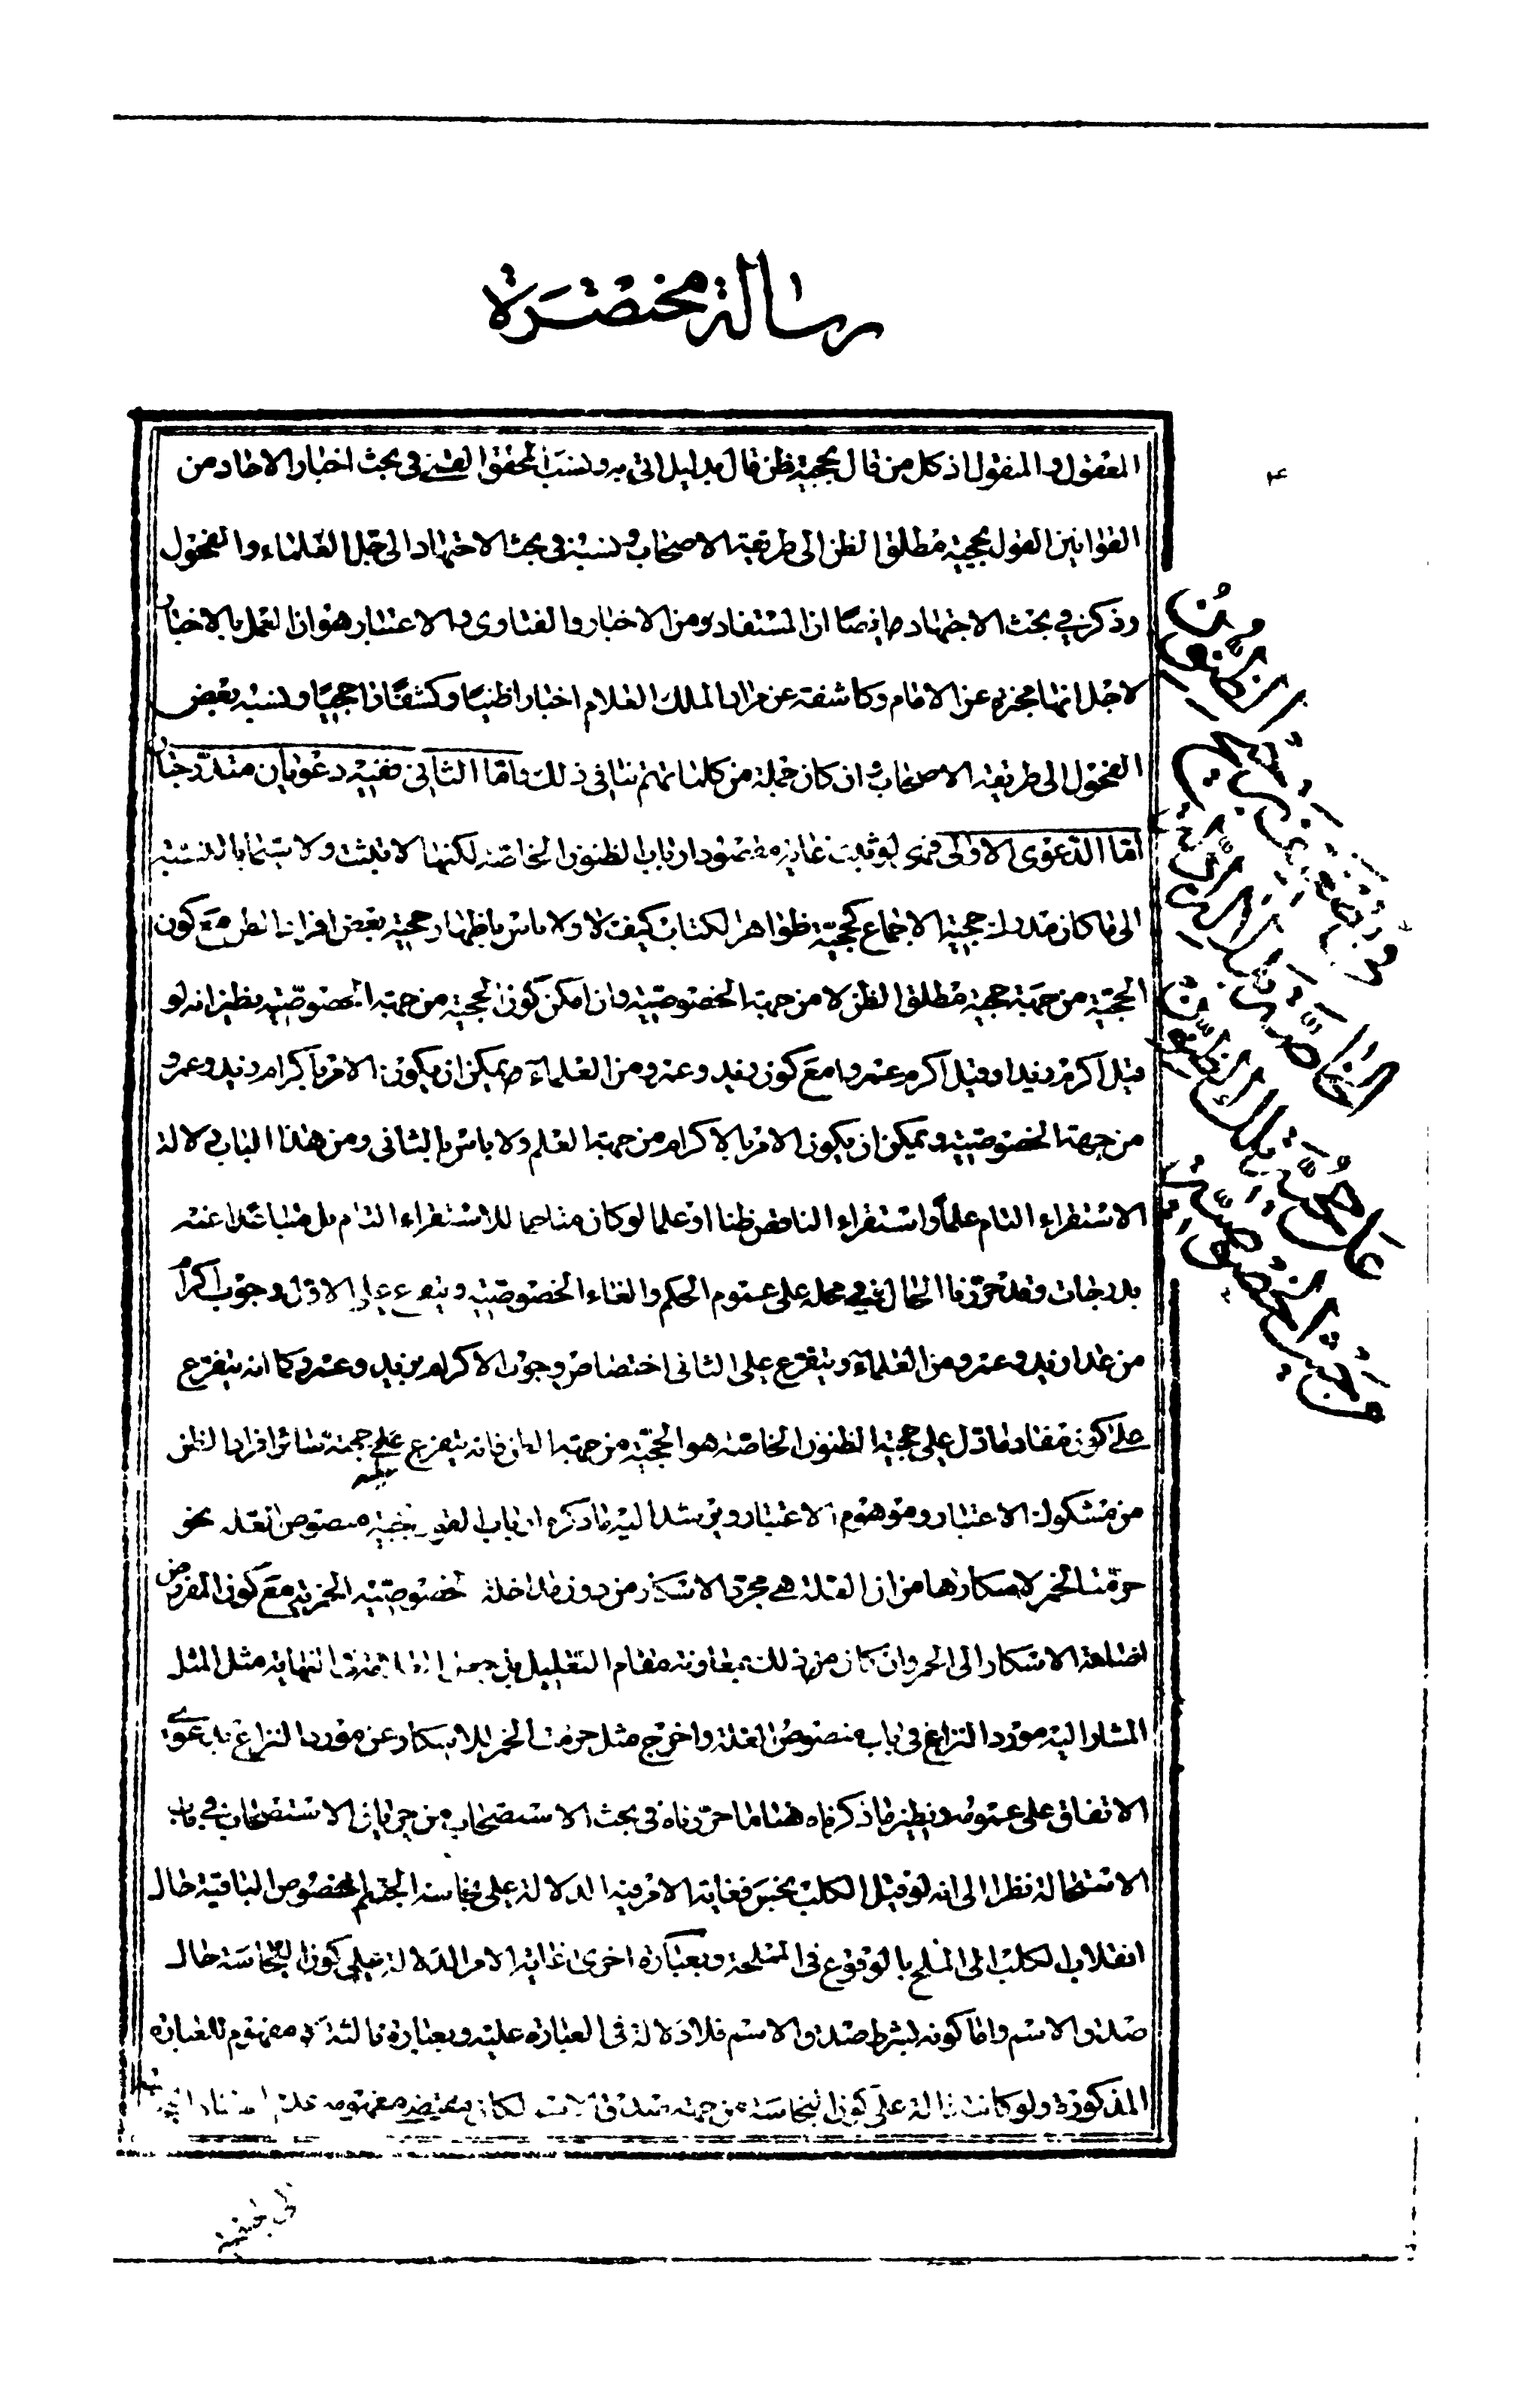 رسالة مختصرة
۴
المعقول والمنقول اذ كل من قال بحجية ظن قال بدليل اتى به ونسب المحقق القمي في بحث اخبار الاحاد من
القوانين القول بحجية مطلق الظن الى طريقة الاصحاب ونسبه في بحث الاجتهاد الى جل العلماء والفحول
وذكر في بحث الاجتهاد ايضا ان المستفاد من الاخبار والفتاوى والاعتبار هو ان العمل بالاخبار
لاجل انها مخبرة عن الامام وكاشفة عن مراد الملك العلام اخبارا ظنيا وكشفا راجحيا ونسبه بعض
الفحول الى طريقة الاصحاب وان كان جملة من كلماتهم تنافى ذلك واما الثاني ففيه دعويان متدرجتان
اما الدعوى الاولى فهى لو ثبت غاية مقصود ارباب الظنون الخاصة لكنها لا يثبت ولا سيما بالنسبة
الى ما كان مدرك حجية الاجماع كحجية ظواهر الكتاب كيف لا ولا باس باظهار حجية بعض افراد الظن مع كون
الحجية من جهة حجية مطلق الظن لا من جهة الخصوصية وان امكن كون الحجية من جهة الخصوصية نظير انه لو
قيل اكرم زيدا وقيل اكرم عمروا مع كون زيد وعمرو من العلماء فيمكن ان يكون الامر باكرام زيد وعمرو
من جهة الخصوصية ويمكن ان يكون الامر بالاكرام من جهة العلم ولا باس بالثانى ومن هذا الباب دلالة
الاستقراء التام علما واستقراء الناقص ظنا او علما لو كان متاخما للاستقراء التام بل متباعدا عنه
بدرجات وقد حررنا الحال في محله على عموم الحكم والغاء الخصوصية ويتفرع على الاول وجوب اكرام
من عدا زيد وعمرو من العلماء ويتفرع على الثانى اختصاص وجوب الاكرام بزيد وعمرو كما انه يتفرع
على كون مفاد ما دل على حجية الظنون الخاصة هو الحجية من جهة الظن فانه يتفرع عليه حجية سائر افراد الظن
من مشكوك الاعتبار وموهوم الاعتبار ويرشد اليه ما ذكره ارباب القول بحجية منصوص العلة نحو
حرمت الخمر لاسكارها من ان العلة هي مجرد الاسكار من دون مداخلة خصوصية الخمرية مع كون المفروض
اضافة الاسكار الى الخمر وان كان من ذلك بمعاونة مقام التعليل النهاية مثل المثل
المشار اليه مورد النزاع فى باب منصوص العلة واخرج مثل حرمت الخمر للاسكار عن مورد النزاع بدعوى
الاتفاق على عمومه ونظير ما ذكرناه هنا ما حررناه فى بحث الاستصحاب من جريان الاستصحاب في باب
الاستحالة نظرا الى انه لو قيل الكلب نجس فغاية الامر فيه الدلالة على نجاسة الجسم المخصوص الباقية حال
انقلاب الكلب الى الملح بالوقوع فى المملحة وبعبارة اخرى غاية الامر الدلالة على كون النجاسة حال
صدق الاسم واما كونه بشرط صدق الاسم فلا دلالة فى العبارة عليه وبعبارة ثالثة مفهوم للعبارة
المذكورة ولو كانت دالة على كون النجاسة من جهة صدق الاسم لكان مقتضى مفهومه عدم
من الظنون
الخاصة
على حجية تلك الظنون
من حيث الخصوصية